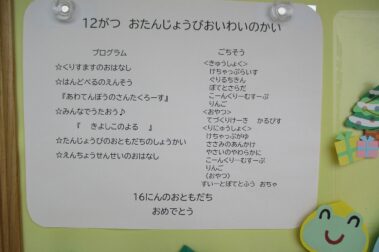 12がつ　おたんじょうびおいわいのかい
プログラム
☆くりすますのおはなし
☆はんどべるのえんそう
『あわてんぼうのさんたくろーす』
☆みんなでうたおう♪
『　きよしこのよる　』
☆たんじょうびのおともだちのしょうかい
☆えんちょうせんせいのおはなし
ごちそう
<きゅうしょく>
けちゃっぷらいす
ぐりるちきん
ぽてとさらだ
こーんくりーむすーぷ
りんご
<おやつ>
てづくりけーき　かるぴす
<りにゅうしょく>
けちゃっぷがゆ
ささみのあんかけ
やさいのやわらかに
こーんくりーむすーぷ
りんご
<おやつ>
すいーとぽてとふう　おちゃ
16にんのおともだち
おめでとう